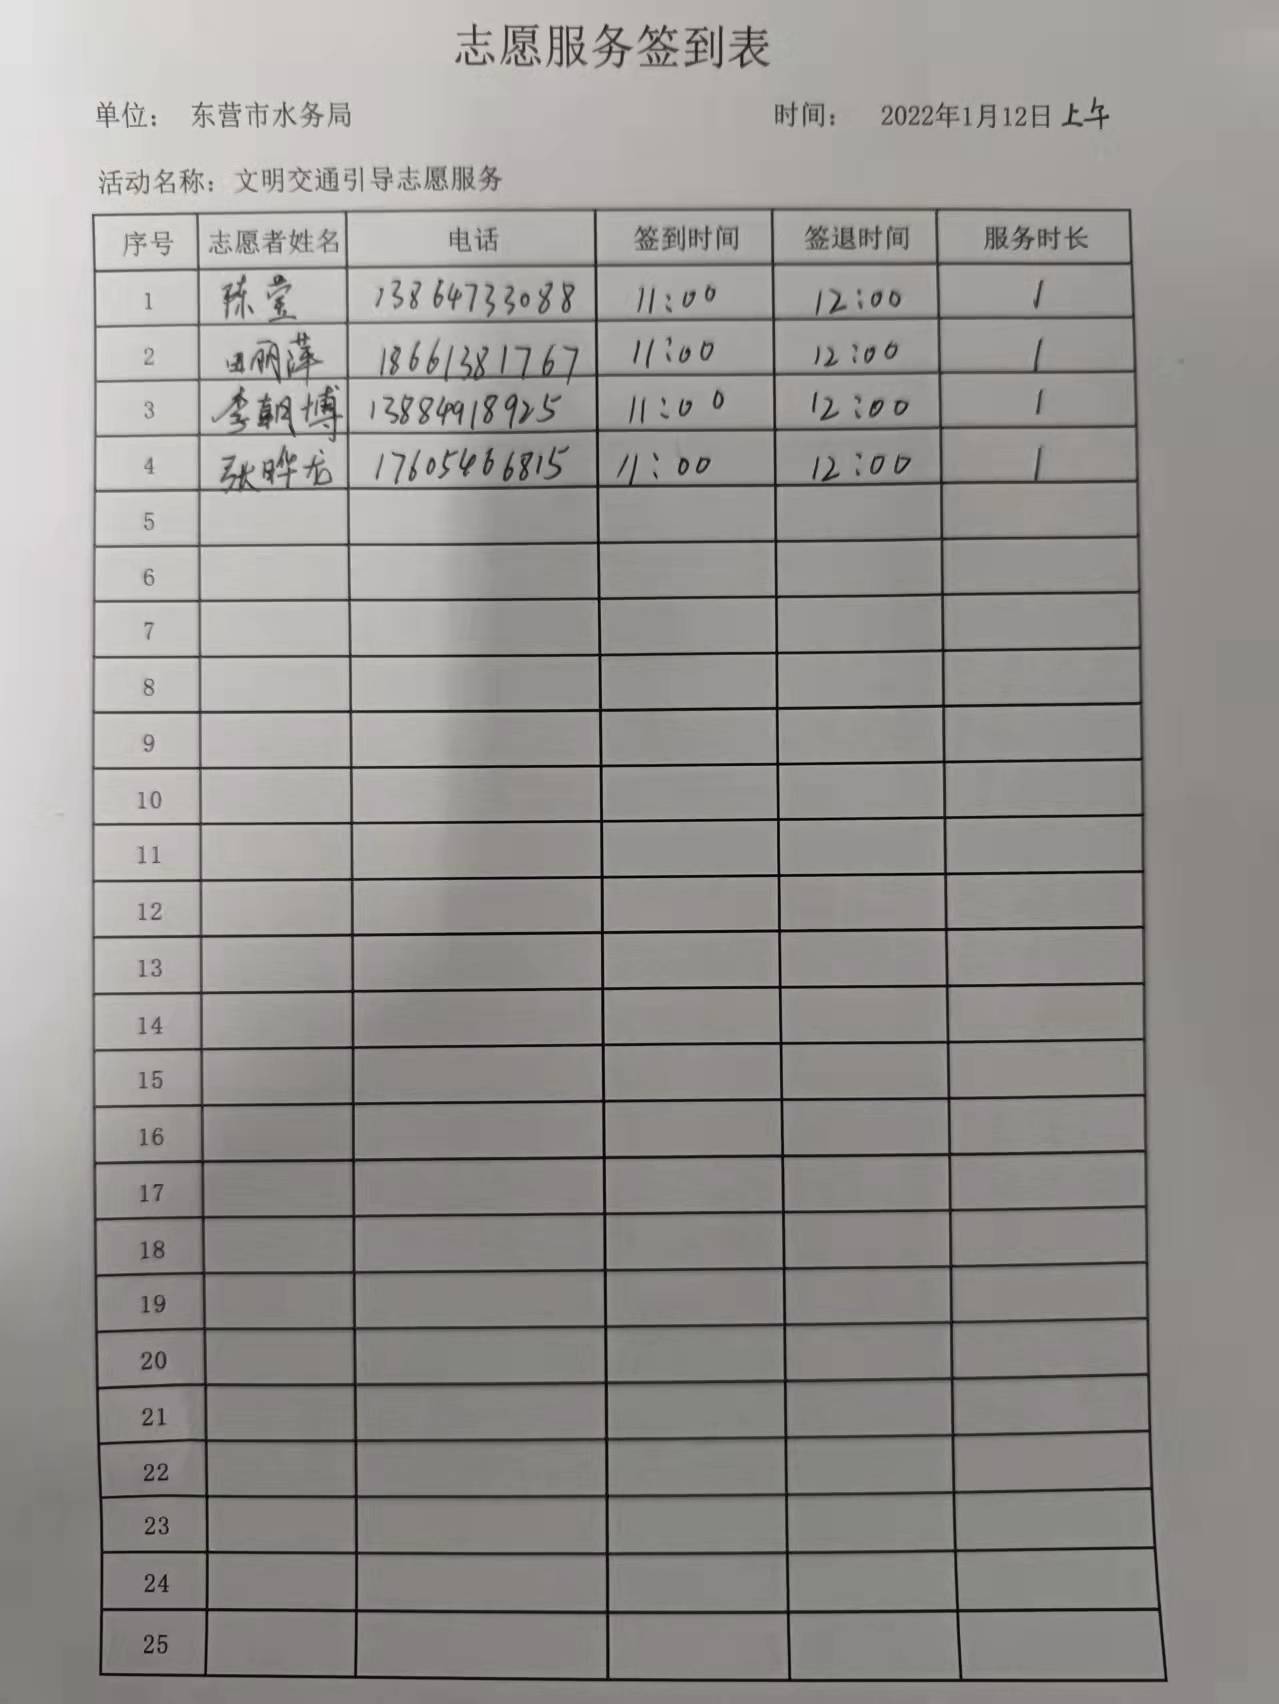 志愿服务签到表
单位： 东营市水务局 时间： 2022年1月12日 上午
活动名称：文明交通引导志愿服务
序号 志愿者姓名 电话 签到时间 签退时间 服务时长
1 陈莹 13864733088 11:00 12:00 1
2 田丽萍 18661381767 11:00 12:00 1
3 李朝博 13884918925 11:00 12:00 1
4 张晔龙 17605466815 11:00 12:00 1
5
6
7
8
9
10
11
12
13
14
15
16
17
18
19
20
21
22
23
24
25